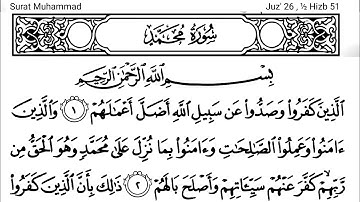 Surat Muhammad Juz' 26 , ½ Hizb 51
سُورَةُ مُحَمَّدٍ
بِسْمِ اللَّهِ الرَّحْمَٰنِ الرَّحِيمِ
الَّذِينَ كَفَرُوا وَصَدُّوا عَن سَبِيلِ اللَّهِ أَضَلَّ أَعْمَٰلَهُمْ ١ وَالَّذِينَ
ءَامَنُوا وَعَمِلُوا الصَّٰلِحَٰتِ وَءَامَنُوا بِمَا نُزِّلَ عَلَىٰ مُحَمَّدٍ وَهُوَ الْحَقُّ مِن
رَّبِّهِمْ كَفَّرَ عَنْهُمْ سَيِّـَٔاتِهِمْ وَأَصْلَحَ بَالَهُمْ ٢ ذَٰلِكَ بِأَنَّ الَّذِينَ كَفَرُوا